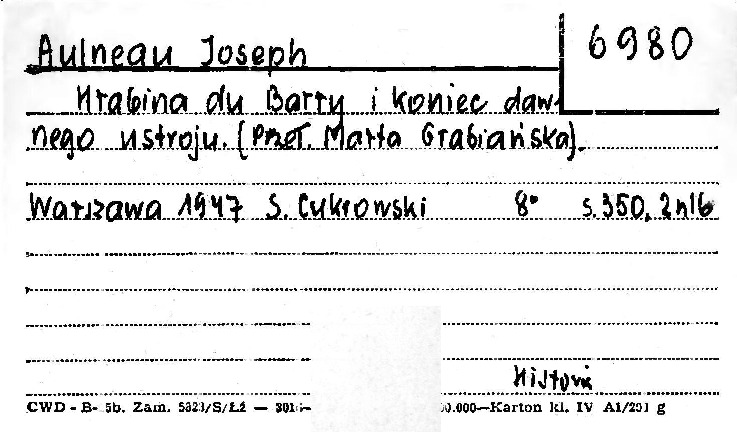 Aulneau Joseph
6980
Hrabina du Barry i koniec daw-
nego ustroju. (Przeł. Marta Grabiańska).
Warszawa 1947 S. Cukrowski 8° s. 350, 2 nlb
Historia
CWD - B- 5b. Zam. 5323/S/Łź — 301 00.000—Karton kl. IV A1/291 g